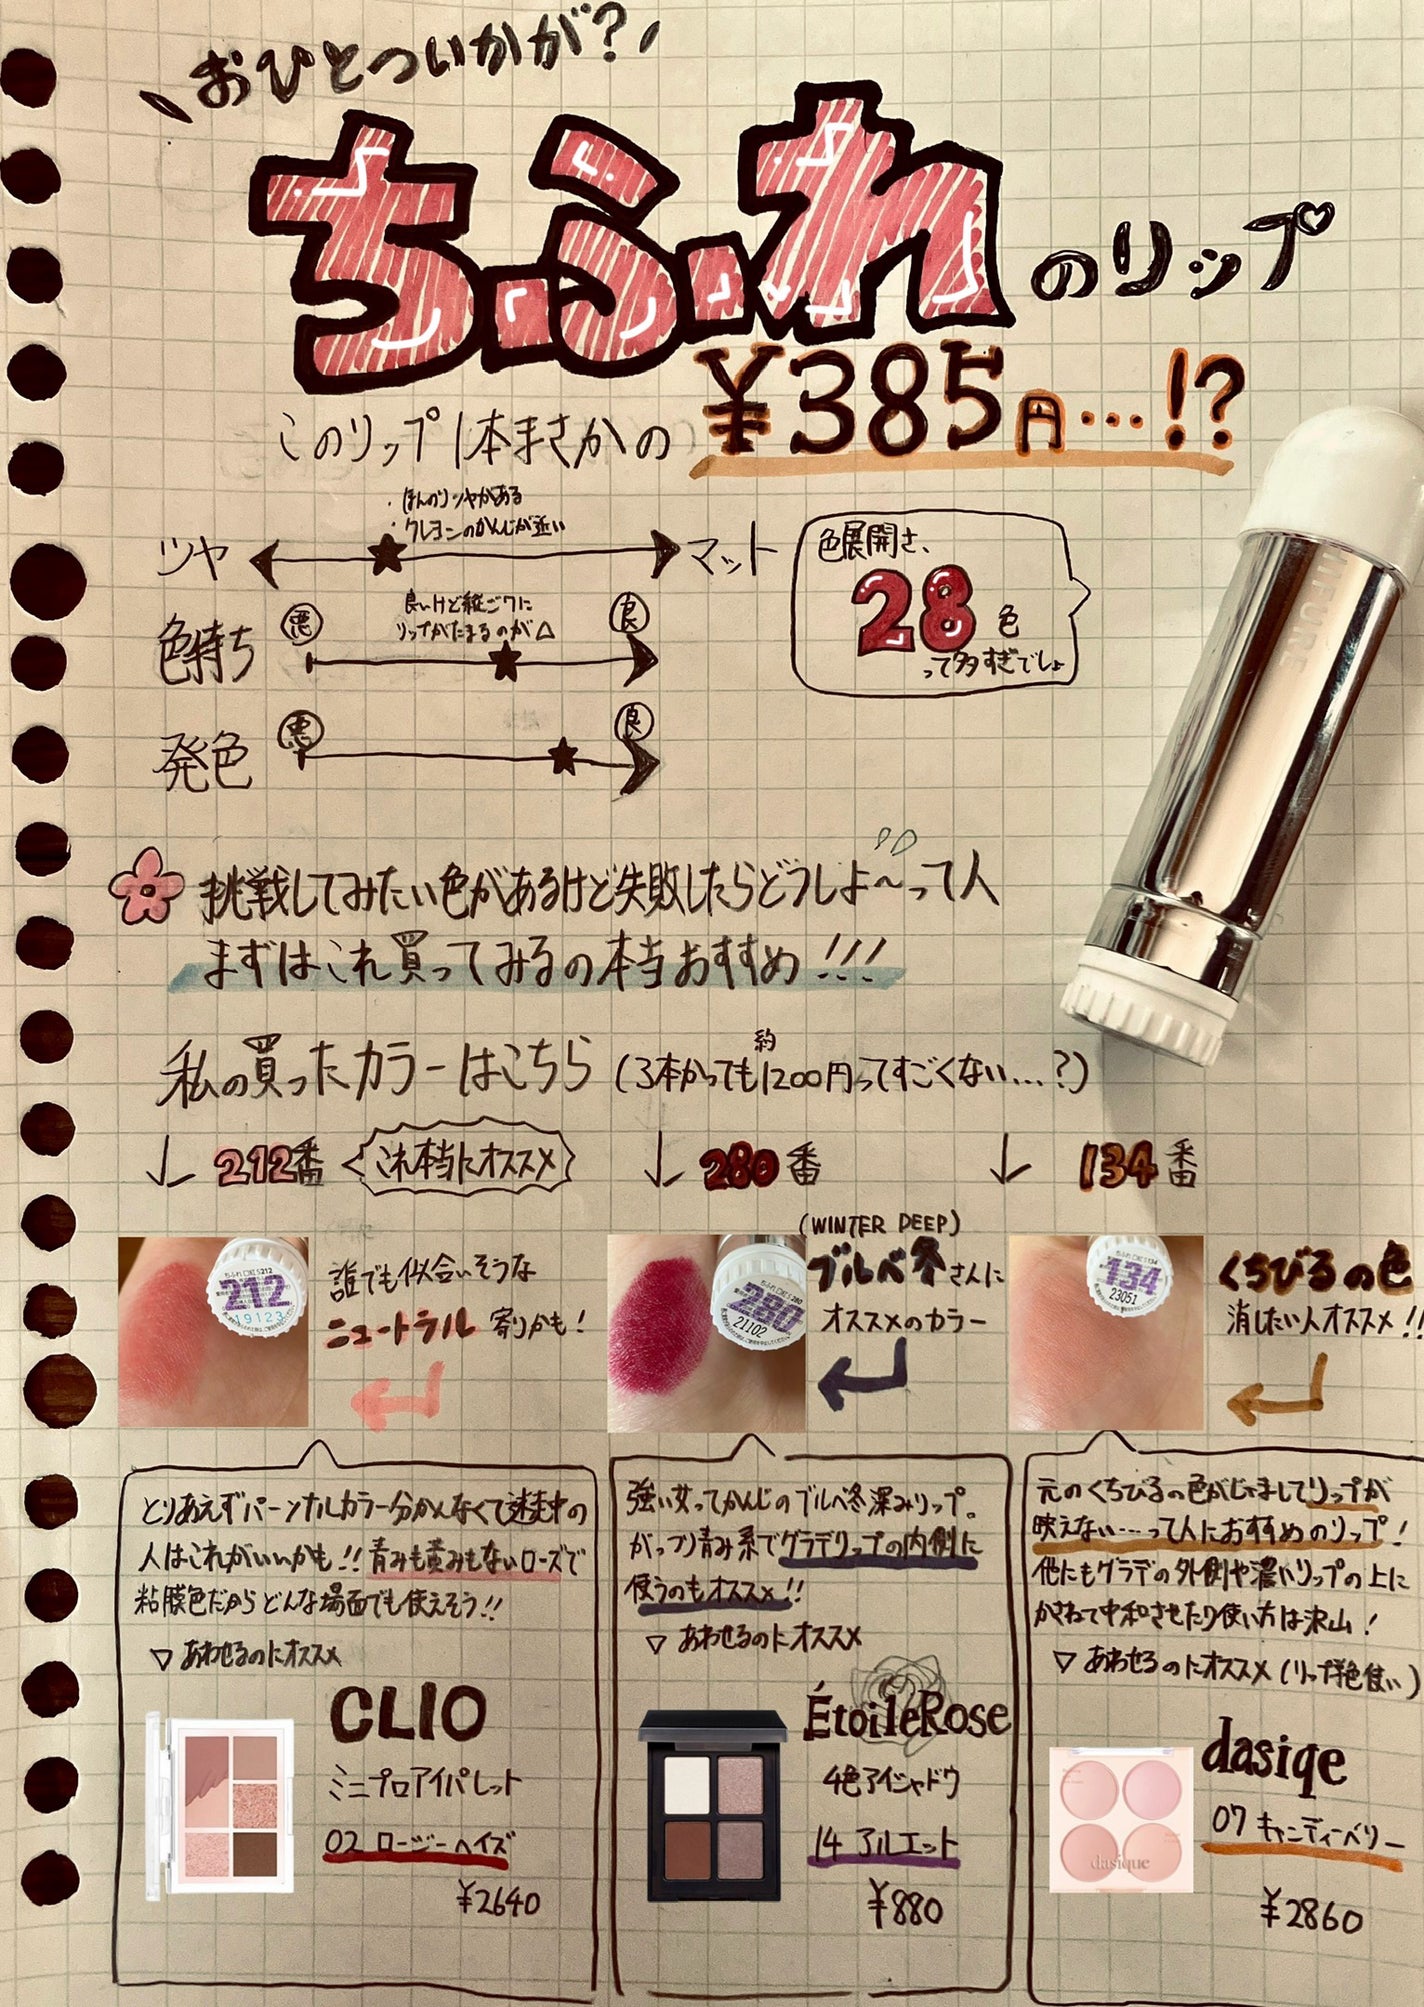 おひとついかが？
ちふれのリップ
このリップ1本まさかの ¥385円…!?
・ほんのりツヤがある
・クレヨンのかんじが近い
ツヤ マット
色展開さ、
28色
って多すぎでしょ
良いけど縦ジワに
リップがたまるのが△
色持ち 悪 良
発色 悪 良
CHIFURE
挑戦してみたい色があるけど失敗したらどうしよ〜って人
まずはこれ買ってみるの本当おすすめ!!!
私の買ったカラーはこちら (3本かっても約1200円ってすごくない…?)
↓ 212番 これ本当にオススメ
↓ 280番
↓ 134番
212
19123
誰でも似合いそうな
ニュートラル 寄りかも！
280
21102
(WINTER DEEP)
ブルベ冬さんに
オススメのカラー
134
23051
くちびるの色
消したい人オススメ!!
とりあえずパーソナルカラー分かんなくて迷走中の
人はこれがいいかも!! 青みも黄みもないローズで
粘膜色だからどんな場面でも使えそう!!
▽ あわせるのにオススメ
CLIO
ミニプロアイパレット
02 ロージーヘイズ
¥2640
強い女ってかんじのブルベ冬深みリップ。
がっつり青み系でグラデリップの内側に
使うのもオススメ!!
▽ あわせるのにオススメ
ÉtoileRose
4色アイシャドウ
14 アルエット
¥880
元のくちびるの色がじゃましてリップが
映えない……って人におすすめのリップ！
他にもグラデの外側や濃いリップの上に
かさねて中和させたり使い方は沢山！
▽ あわせるのにオススメ
dasiqe
07 キャンディーベリー
dasique
¥2860